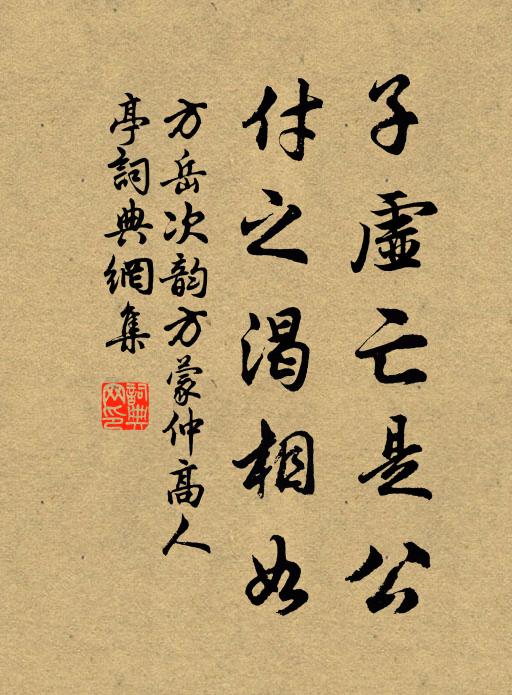 子虛亡是公
付之渴相如
方岳次韵方蒙仲高人
亭詞典網集
詞典網印